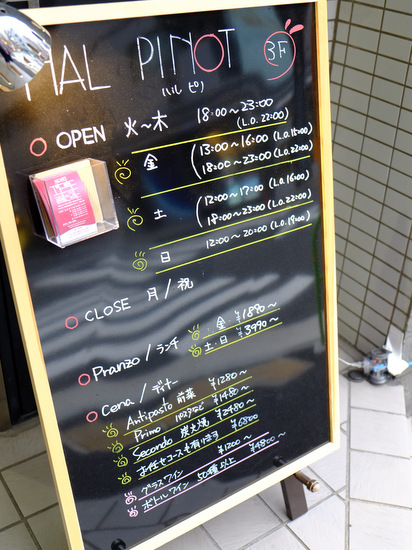 MAL PINOT 3F
OPEN 火〜木 18:00〜23:00
(L.O.22:00)
金 13:00〜16:00 (L.O.15:00)
18:00〜23:00 (L.O.22:00)
土 12:00〜17:00 (L.O.16:00)
18:00〜23:00 (L.O.22:00)
日 12:00〜20:00 (L.O.19:00)
CLOSE 月/祝
Pranzo/ランチ 金・¥1890〜
土・日 ¥3990〜
Cena/ディナー
Antipasto 前菜 ¥1280〜
Primo ¥1480〜
Secondo 炭火焼 ¥2480〜
お任せコースも有ります ¥6800
グラスワイン ¥1200〜
ボトルワイン 50種以上 ¥4800〜